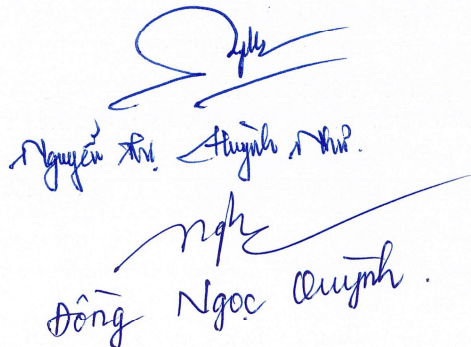 Nguyễn Thị Huỳnh Như.
Đồng Ngọc Quỳnh.